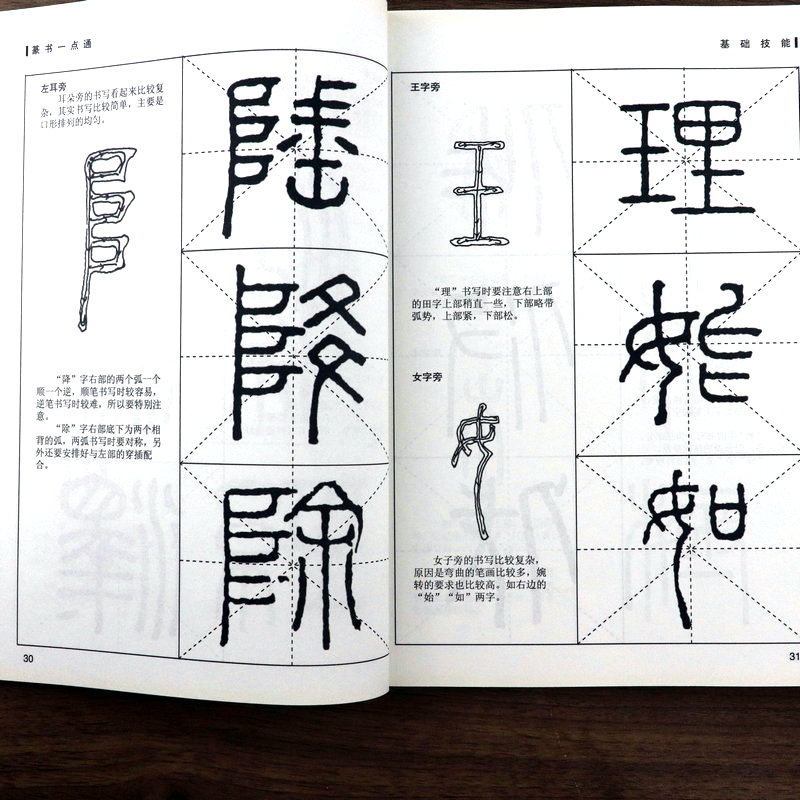 篆书一点通
左耳旁
耳朵旁的书写看起来比较复
杂，其实书写比较简单，主要是
口形排列的均匀。
“降”字右部的两个弧一个
顺一个逆，顺笔书写时较容易，
逆笔书写时较难，所以要特别注
意。
“除”字右部底下为两个相
背的弧，两弧书写时要对称，另
外还要安排好与左部的穿插配
合。
降
除
30
基础技能
王字旁
“理”书写时要注意右上部
的田字上部稍直一些，下部略带
弧势，上部紧，下部松。
女字旁
女子旁的书写比较复杂，
原因是弯曲的笔画比较多，婉
转的要求也比较高。如右边的
“始”“如”两字。
理
如
31